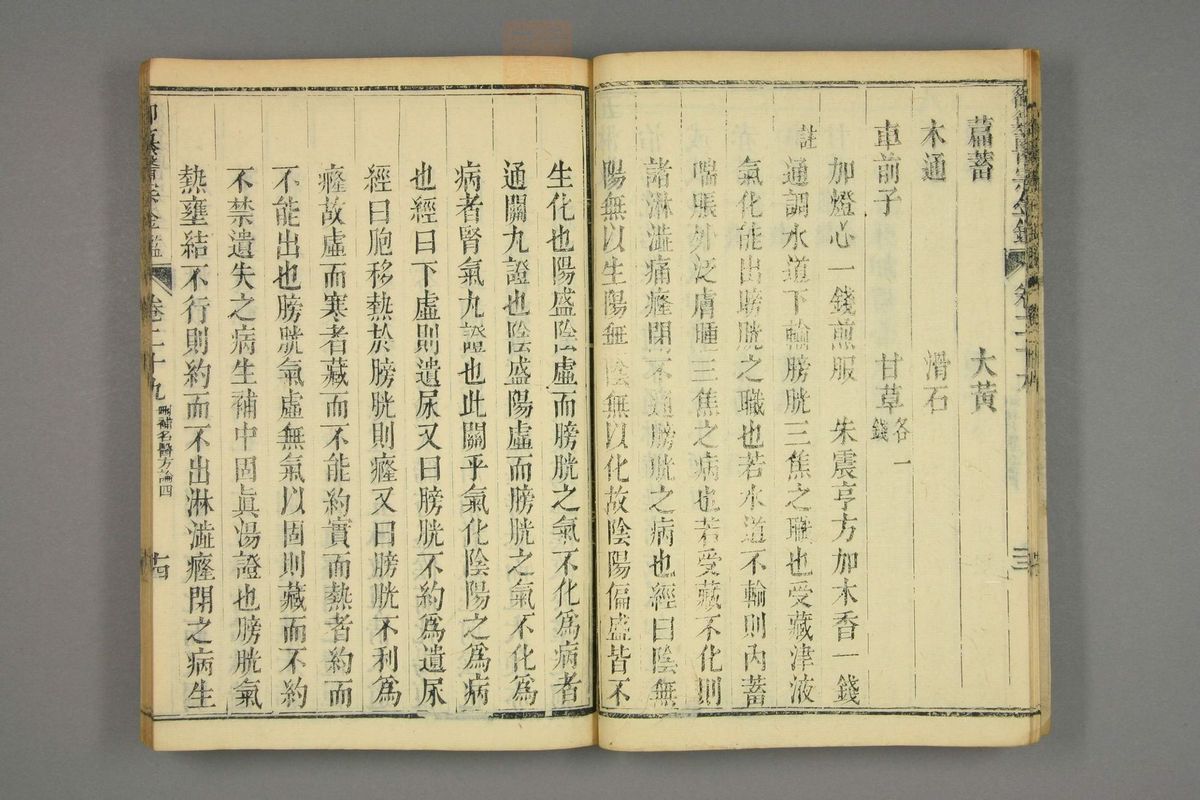 萹蓄　大黃
木通　滑石
車前子　甘草各一錢
加燈心一錢煎服　朱震亨方加木香一錢
註　通調水道下輸膀胱三焦之職也受藏津液
氣化能出膀胱之職也若水道不輸則內蓄
喘脹外泛膚腫三焦之病也若受藏不化則
諸淋澁痛癃閉不通膀胱之病也經曰陰無
陽無以生陽無陰無以化故陰陽偏盛皆不
生化也陽盛陰虛而膀胱之氣不化爲病者
通關九證也陰盛陽虛而膀胱之氣不化爲
病者腎氣九證也此關乎氣化陰陽之爲病
也經曰下虛則遺尿又曰膀胱不約爲遺尿
經曰胞移熱於膀胱則癃又曰膀胱不利爲
癃故虛而寒者藏而不能約實而熱者約而
不能出也膀胱氣虛無氣以固則藏而不約
不禁遺失之病生補中固眞湯證也膀胱氣
熱壅結不行則約而不出淋澁癃閉之病生
御纂醫宗金鑑　卷二十九　刪補名醫方論四　十四